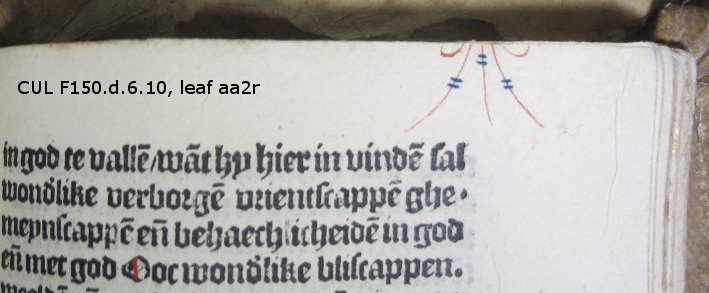 CUL F150.d.6.10, leaf aa2r
in god te vallē/wāt hy hier in vindē sal
wond̉like verborgē vrientscappē ghe⸗
meynscappē eñ behaechlicheidē in god
eñ met god Ooc wond̉like bliscappen.